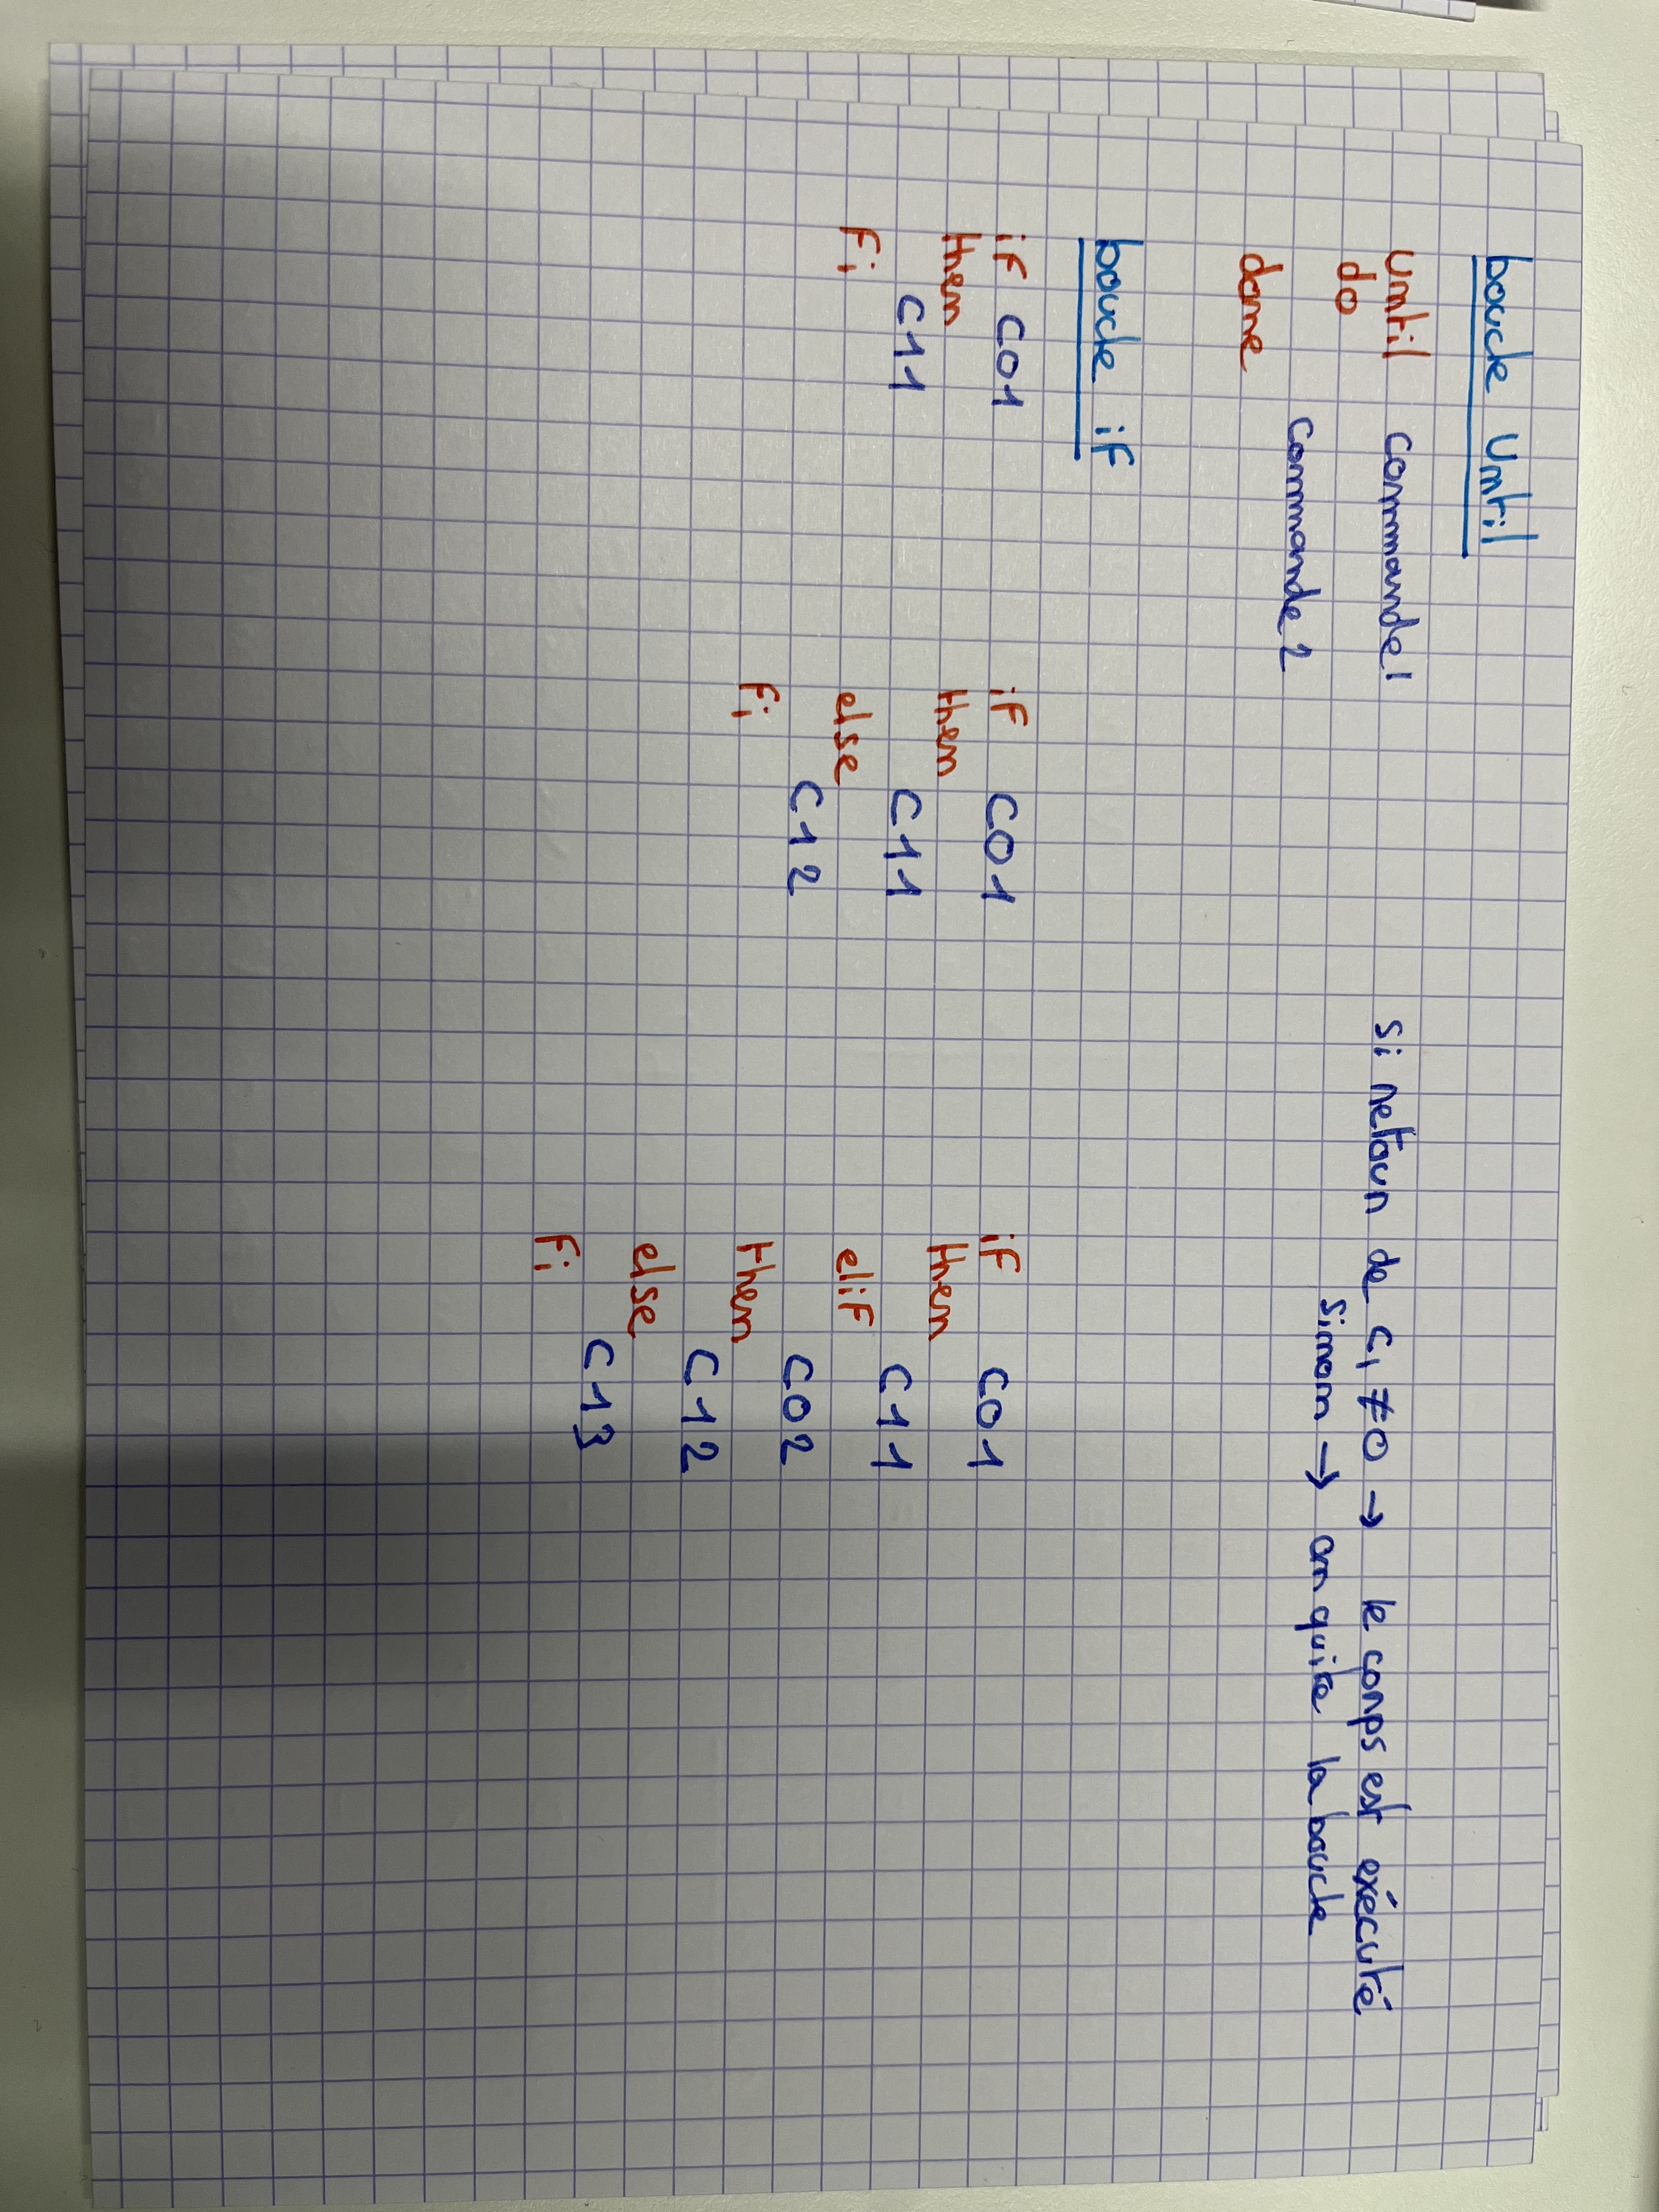 boucle Until
until commande1
do
commande2
done
si retour de c1 ≠ 0 → le corps est exécuté
sinon → on quitte la boucle
boucle if
if C01
then
C11
fi
if C01
then
C11
else
C12
fi
if C01
then
C11
elif
C02
then
C12
else
C13
fi